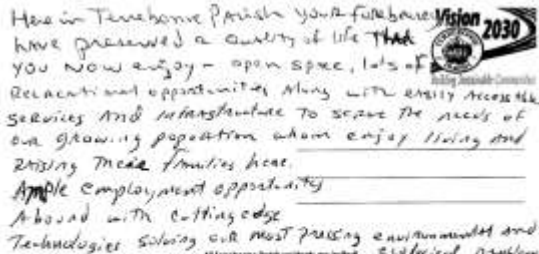 Here in Terrebonne Parish your forebearers
have preserved a quality of life that
you now enjoy - open space, lots of
Recreational opportunities along with easily accessible
services and infrastructure to serve the needs of
our growing popoation whom enjoy living and
raising their families here.
Ample employment opportunity
Abound with cutting edge
Technologies solving our most pressing environmental and
Vision 2030
Building Sustainable Communities